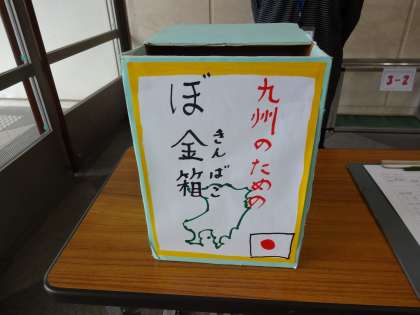 九州のための
ぼ金箱
きんばこ
3-2